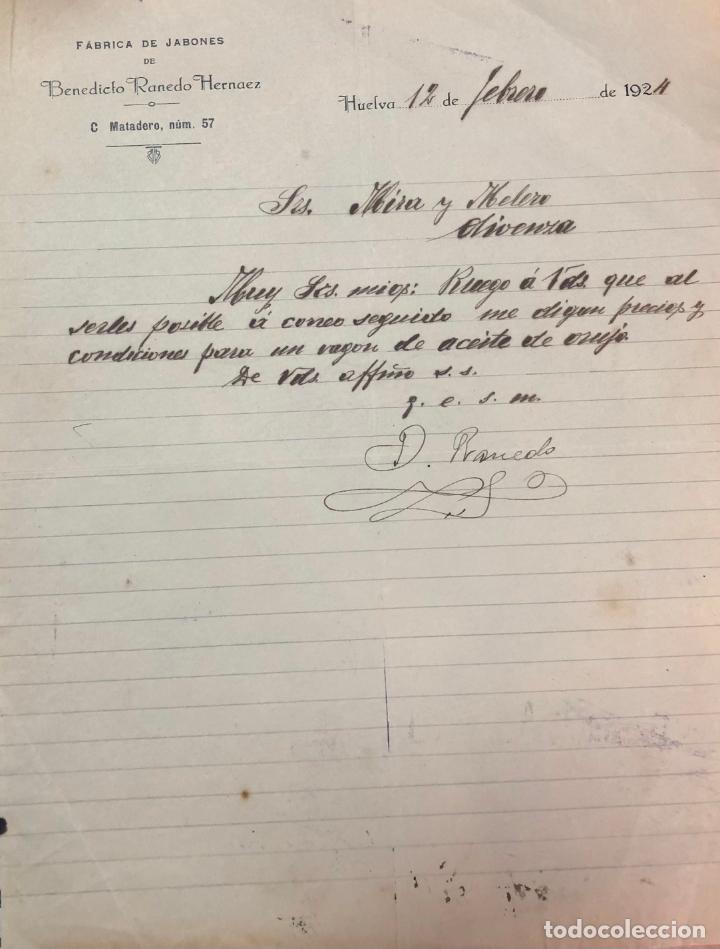 FÁBRICA DE JABONES
DE
Benedicto Ranedo Hernaez
C Matadero, núm. 57
Huelva 12 de febrero de 1924
Srs. Mira y Melero
Olivenza
Muy Srs. mios: Ruego á Vds. que al
serles posible á correo seguido me digan precios y
condiciones para un vagon de aceite de orujo.
De Vds. affmo s.s.
q. e. s. m.
B. Ranedo
todocoleccion